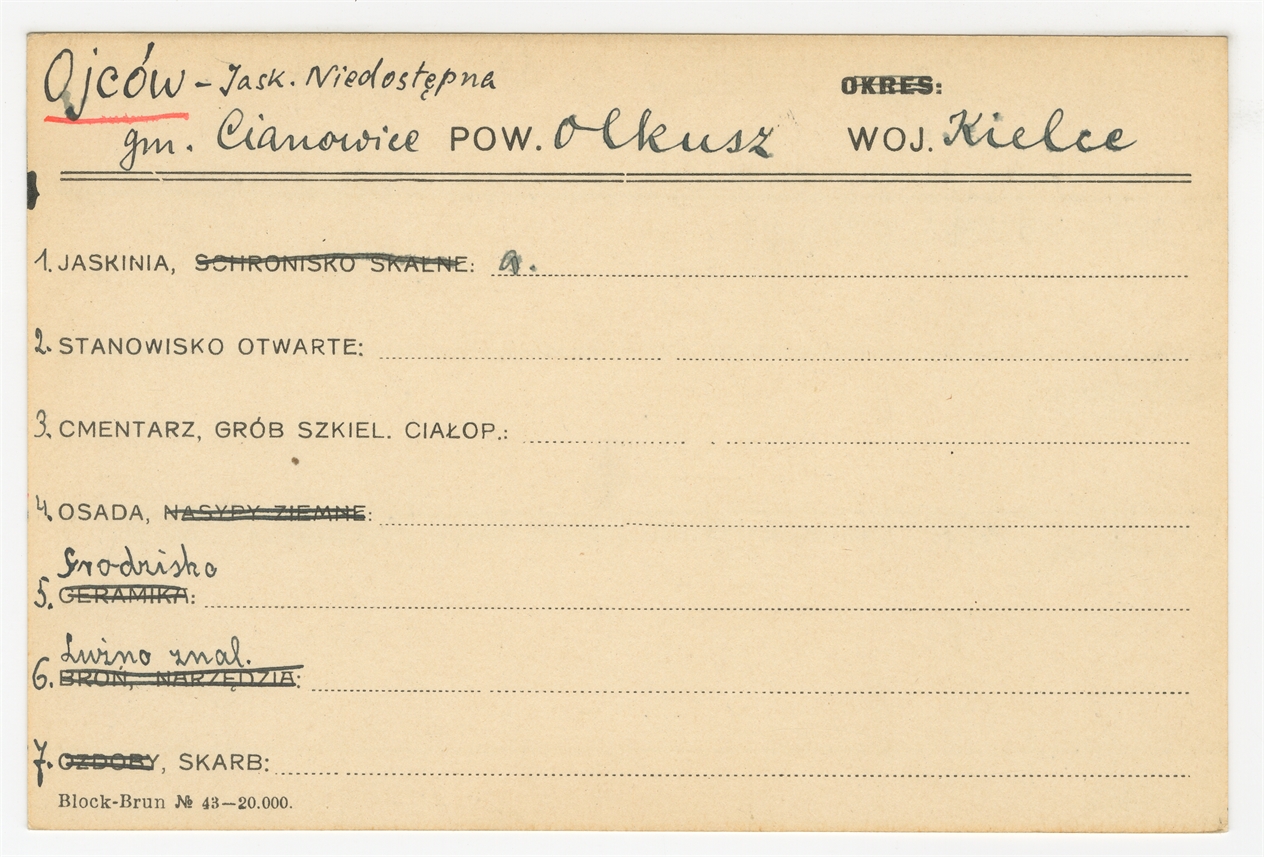 Ojców - Jask. Niedostępna OKRES:
gm. Cianowice POW. Olkusz WOJ. Kielce
1. JASKINIA, SCHRONISKO SKALNE: a.
2. STANOWISKO OTWARTE:
3. CMENTARZ, GRÓB SZKIEL. CIAŁOP.:
4. OSADA, NASYPY ZIEMNE:
Grodzisko
5. CERAMIKA:
Luźno znal.
6. BROŃ, NARZĘDZIA:
7. OZDOBY, SKARB:
Block-Brun № 43—20.000.